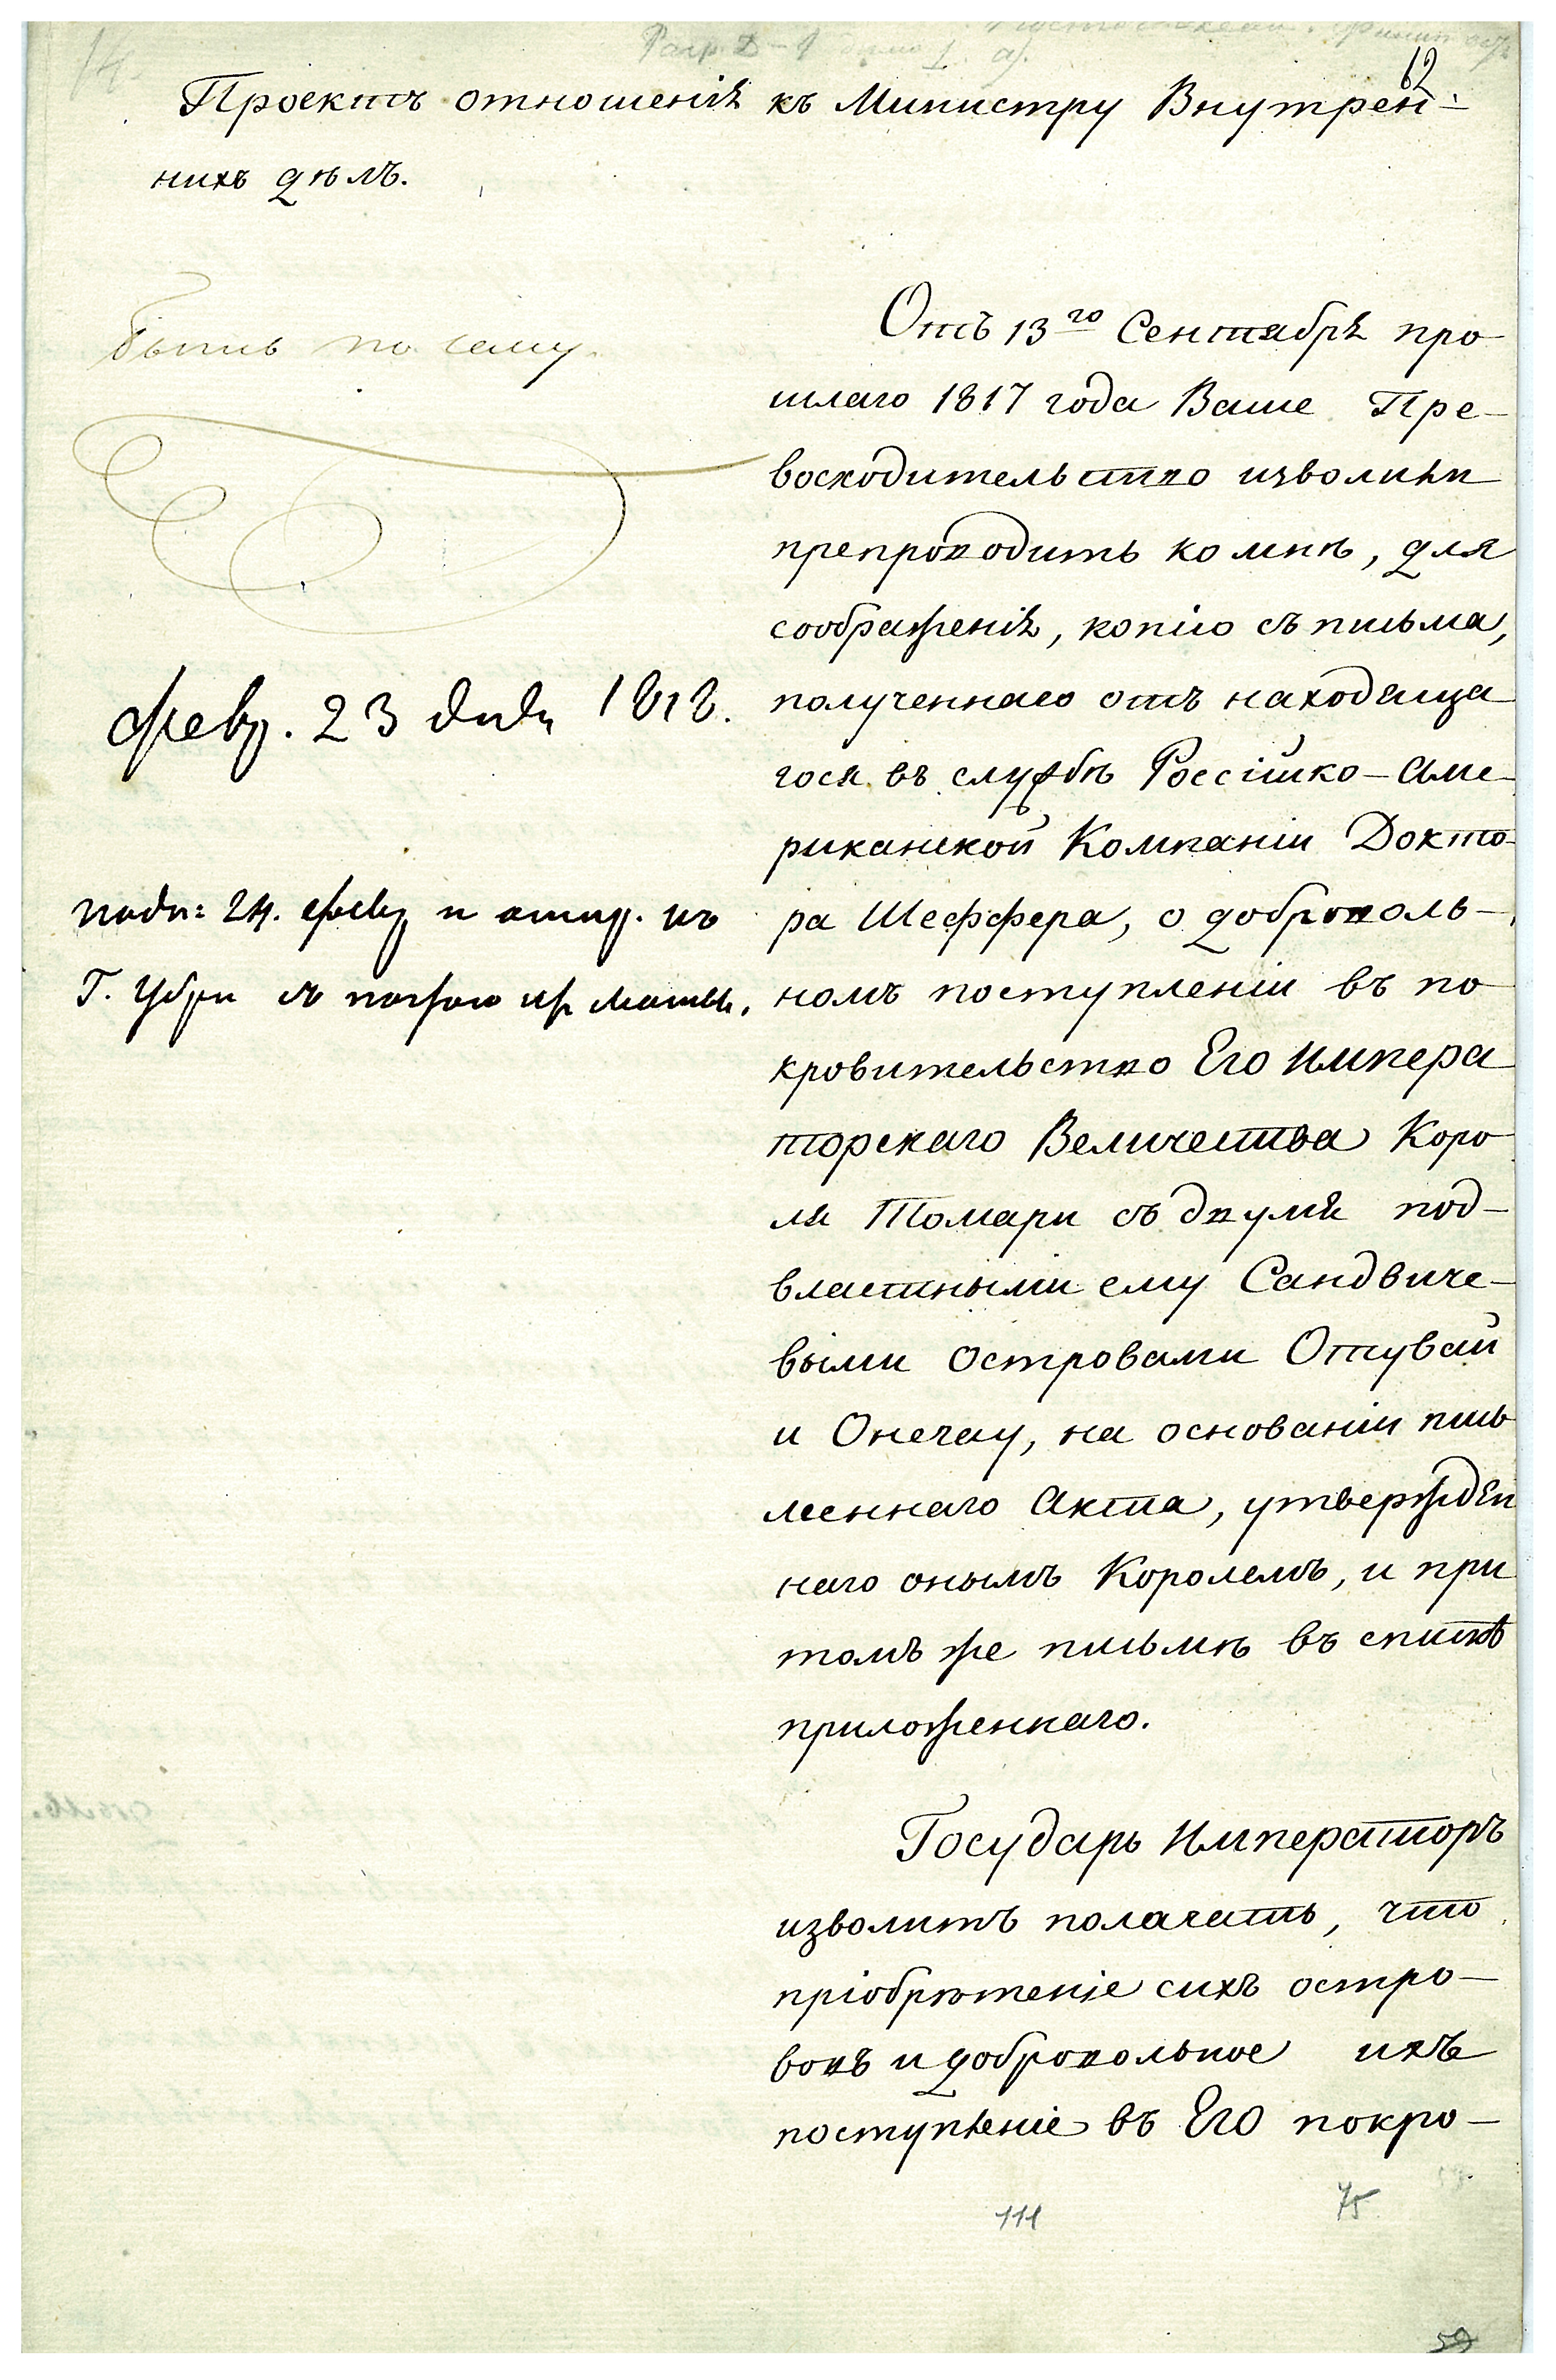 62
Проектъ отношенія къ Министру Внутрен-
нихъ дѣлъ.
Быть по сему.
Отъ 13го Сентября про
шлаго 1817 года Ваше Пре-
восходительство изволили
препроводить ко мнѣ, для
соображенія, копію съ письма,
полученнаго отъ находяща
гося въ службѣ Россійско-Аме-
риканской Компаніи Докто-
ра Шеффера, о доброволь-
номъ поступленіи въ по
кровительство Его Импера
торскаго Величества Коро
ля Томари съ двумя под-
властными ему Сандвиче-
выми островами Отувай
и Онегау, на основаніи пись
меннаго Акта, утвержден
наго онымъ Королемъ, и при
томъ же письмѣ въ спискѣ
приложеннаго.
Государь Императоръ
изволитъ полагать, что
пріобрѣтеніе сихъ остро-
вовъ и добровольное ихъ
поступленіе въ Его покро-
февр. 23 дня 1818.
подп: 24. февр и отпр. къ
Г. Убри съ
111
75
59